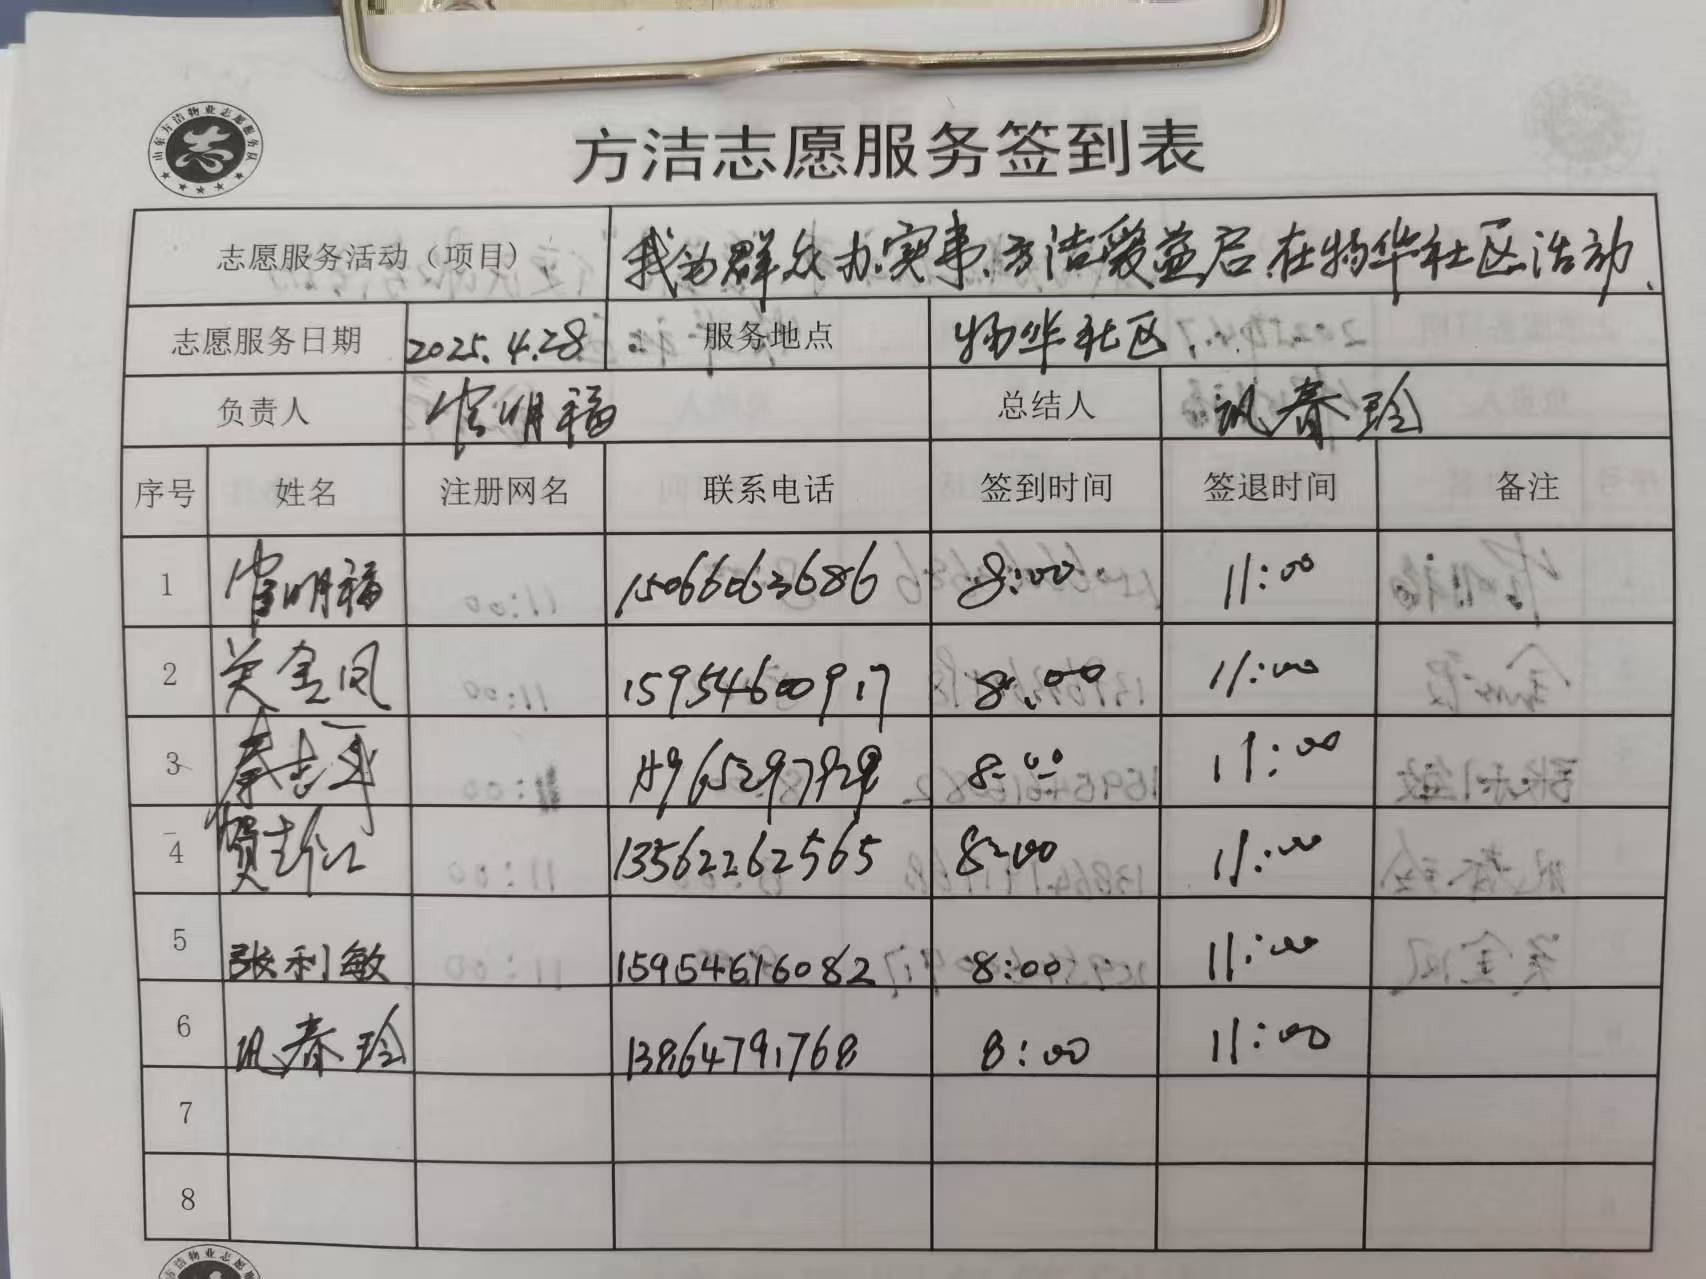 山东方洁物业志愿服务队
方洁志愿服务签到表
志愿服务活动（项目） 我为群众办实事、方洁爱益启在物华社区活动.
志愿服务日期 2025.4.28 服务地点 物华社区
负责人 明福 总结人 巩春玲
序号 姓名 注册网名 联系电话 签到时间 签退时间 备注
1 明福 15066063686 8:00 11:00
2 关金凤 15954600917 8:00 11:00
3 秦志军 8:00 11:00
4 贺 13562262565 8:00 11:00
5 张利敏 15954616082 8:00 11:00
6 巩春玲 13864791768 8:00 11:00
7
8